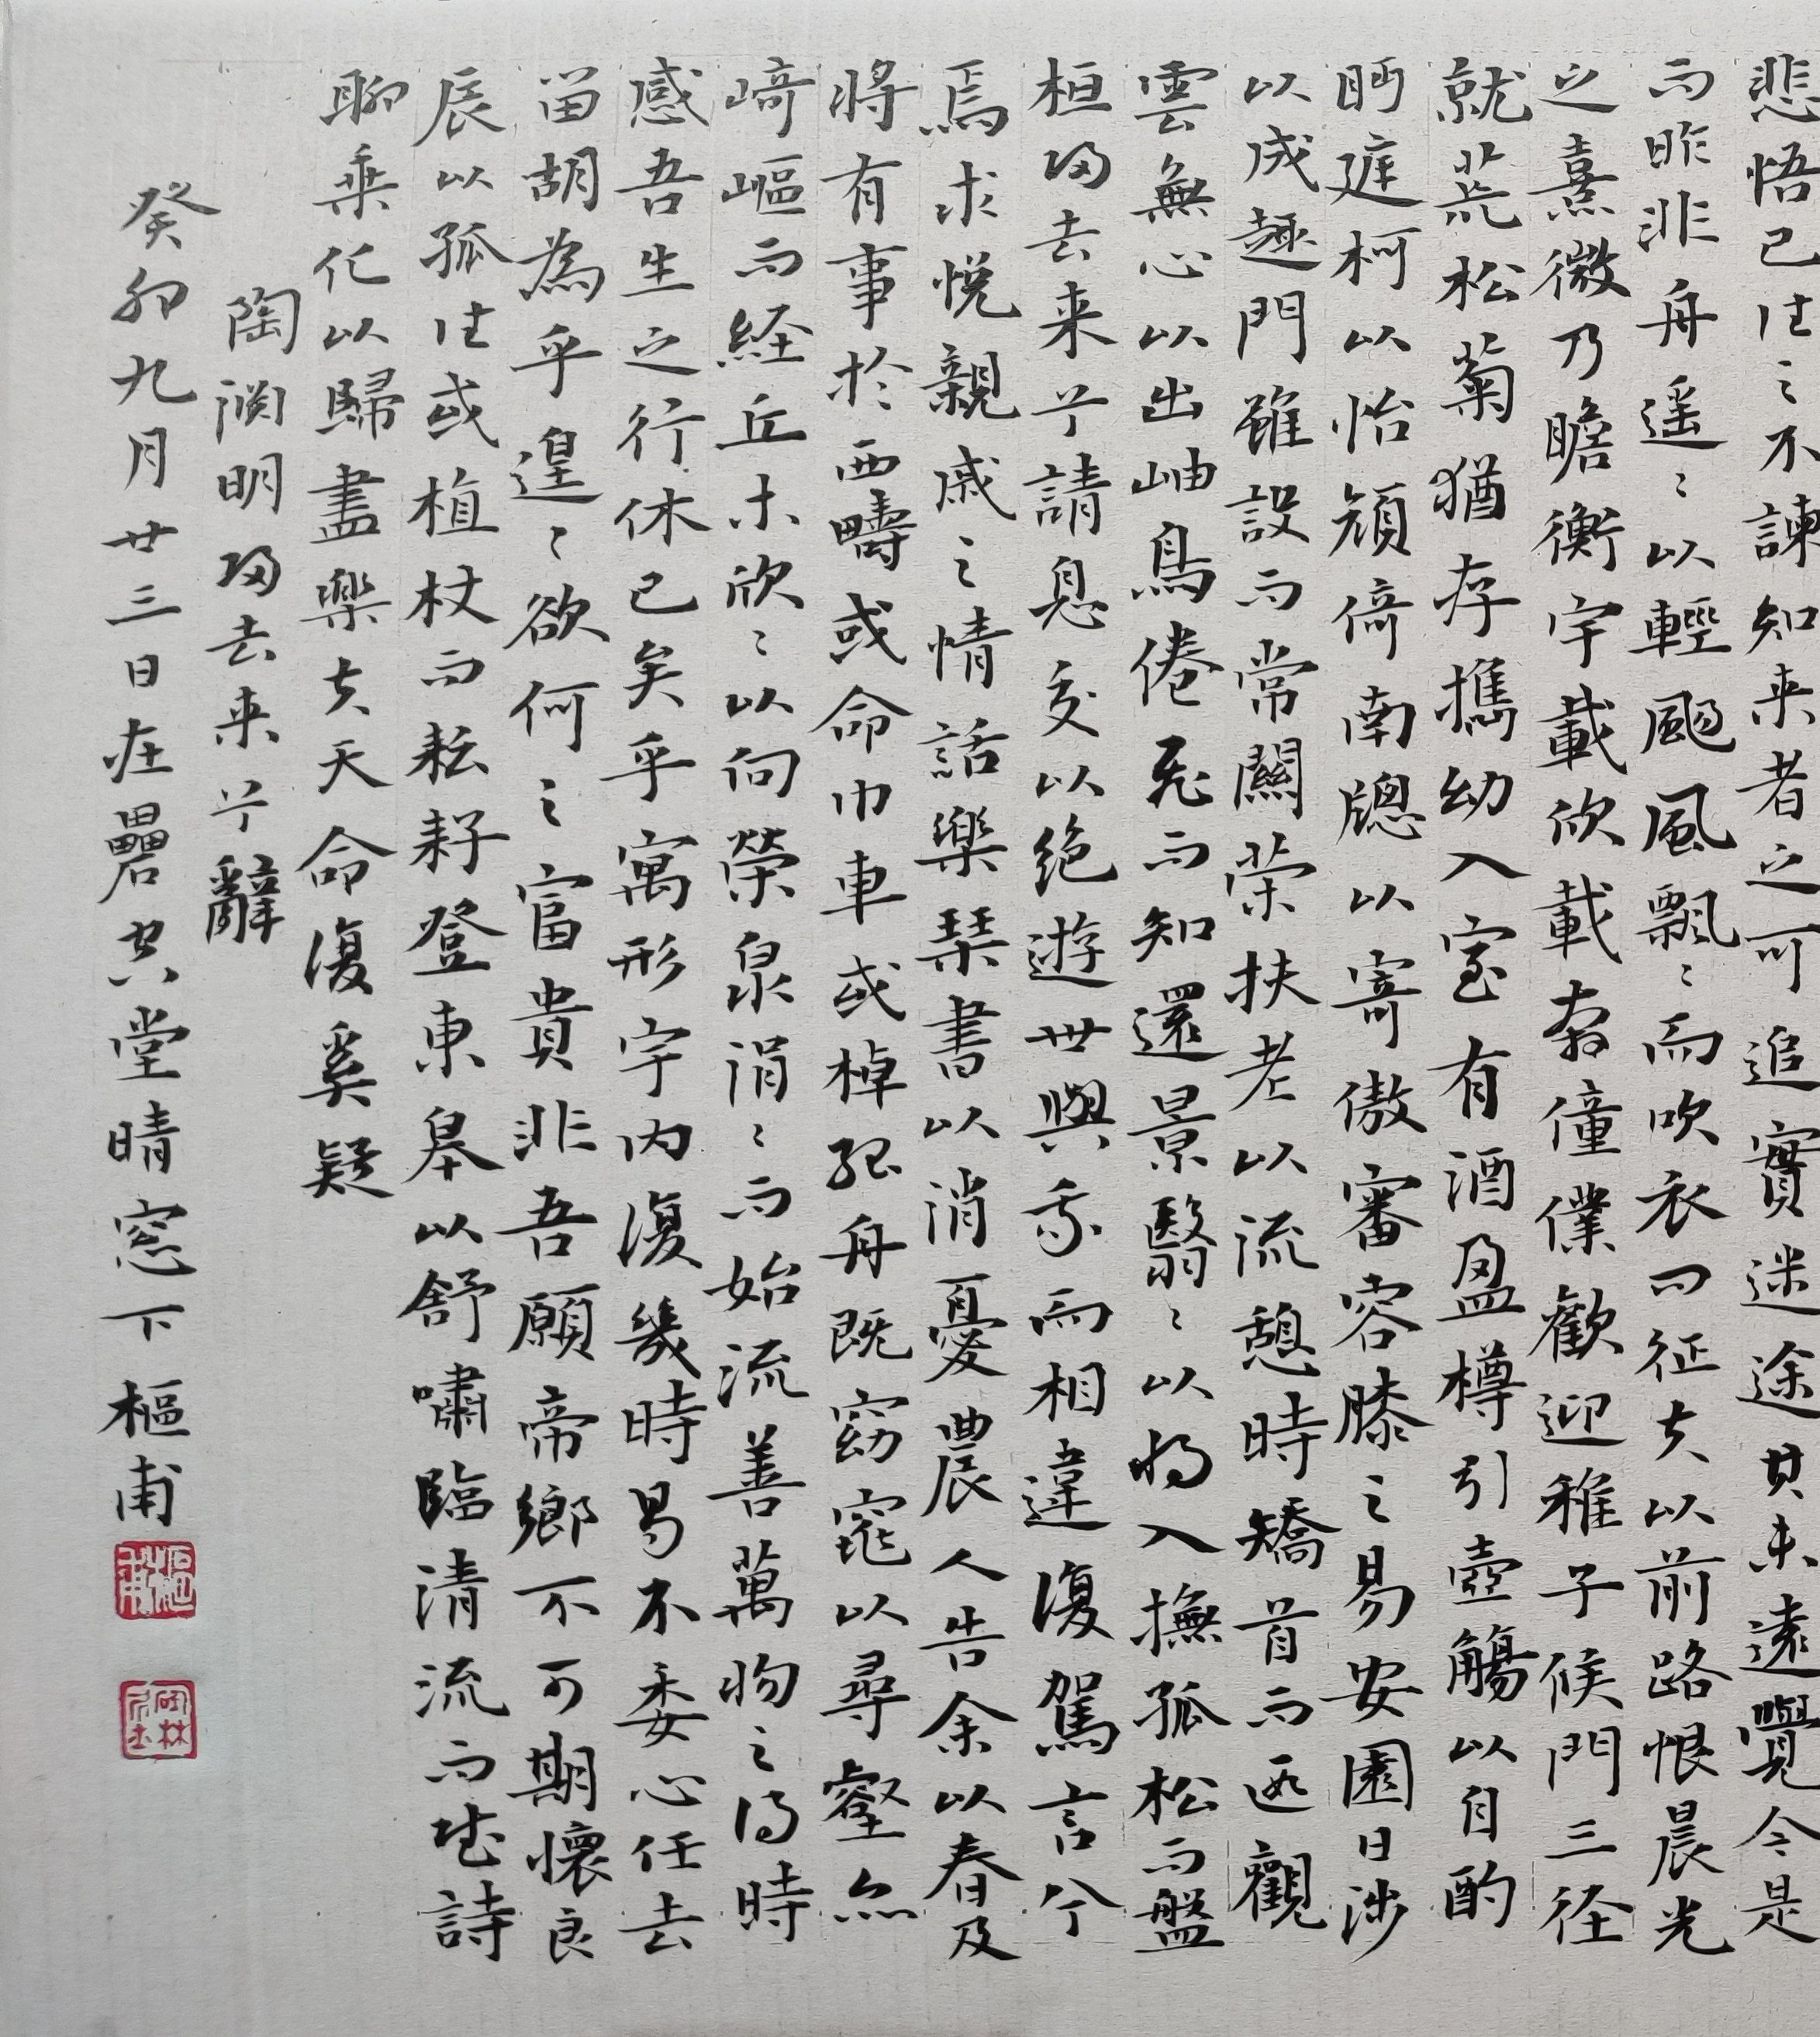 悲悟已往之不諫知来者之可追實迷途其未遠覺今是
而昨非舟遥〻以輕颺風飄〻而吹衣問征夫以前路恨晨光
之熹微乃瞻衡宇載欣載奔僮僕歡迎稚子候門三徑
就荒松菊猶存攜幼入室有酒盈樽引壺觴以自酌
眄庭柯以怡顏倚南牕以寄傲審容膝之易安園日涉
以成趣門雖設而常關策扶老以流憩時矯首而遐觀
雲無心以出岫鳥倦飛而知還景翳〻以将入撫孤松而盤
桓歸去来兮請息交以絶遊世與我而相違復駕言兮
焉求悅親戚之情話樂琴書以消憂農人告余以春及
將有事於西疇或命巾車或棹孤舟既窈窕以尋壑亦
崎嶇而經丘木欣〻以向榮泉涓〻而始流善萬物之得時
感吾生之行休已矣乎寓形宇内復幾時曷不委心任去
留胡為乎遑〻欲何之富貴非吾願帝鄉不可期懷良
辰以孤往或植杖而耘耔登東皋以舒嘯臨清流而賦詩
聊乘化以歸盡樂夫天命復奚疑
陶淵明歸去来兮辭
癸卯九月廿三日在礨空堂晴窓下樞甫
樞甫